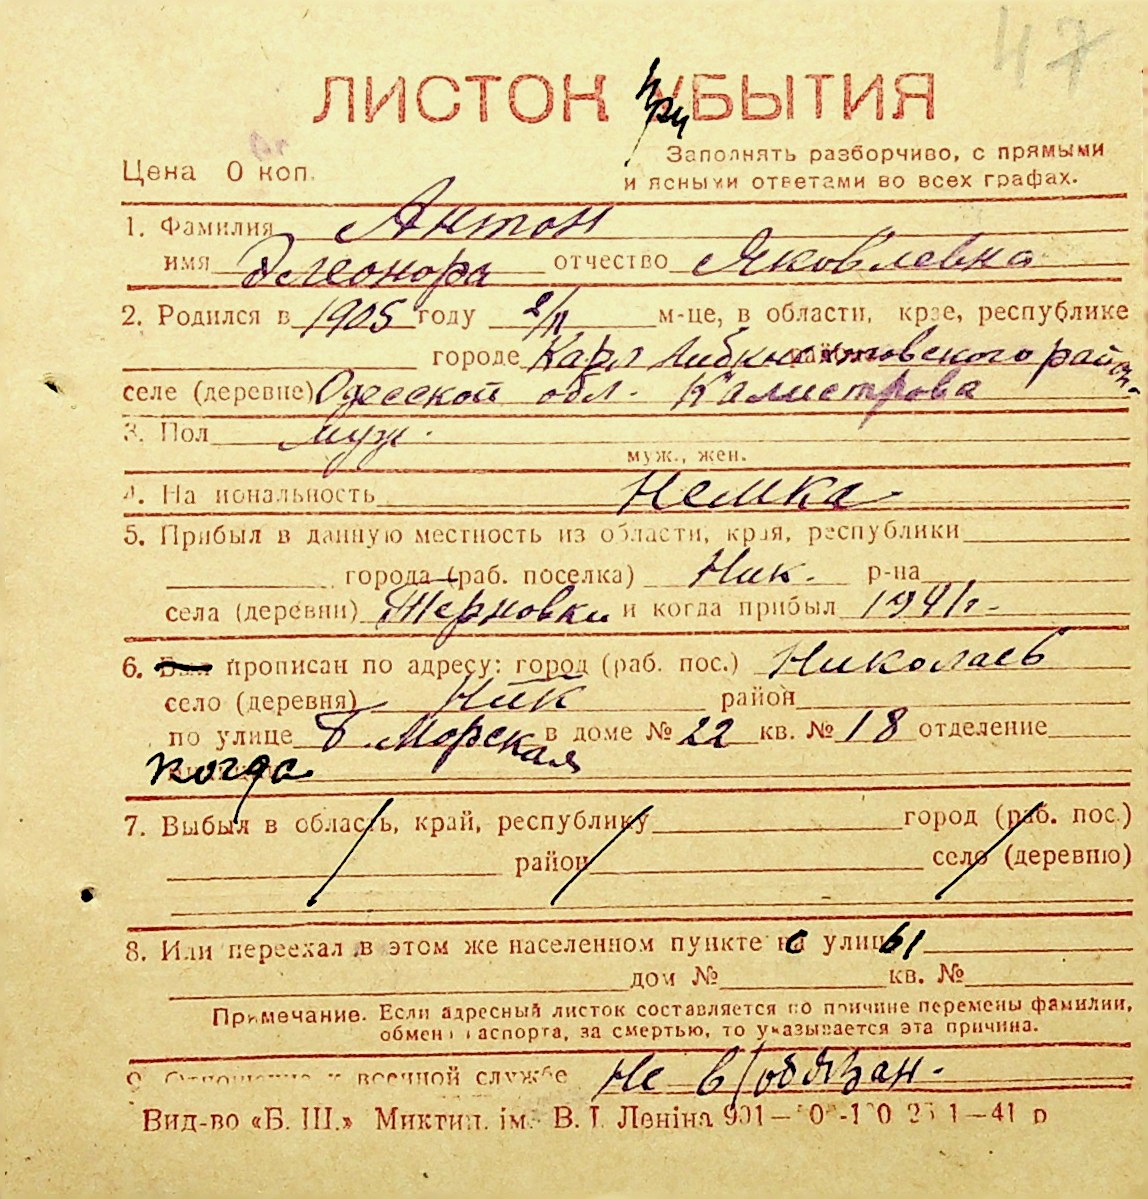 47
ЛИСТОК при УБЫТИЯ
Заполнять разборчиво, с прямыми
Цена 0 коп.
и ясными ответами во всех графах.
1. Фамилия Антон
имя Элеонора отчество Яковлевна
2. Родился в 1905 году 2/II м-це, в области, крае, республике
городе Карл Либкнехтовского район.
селе (деревне) Одесской обл. Калистрова
3. Пол муж.
муж., жен.
4. На иональность Немка
5. Прибыл в данную местность из области, края, республики
города (раб. поселка) Ник. р-на
села (деревни) Терновки и когда прибыл 1941г.
6. Был прописан по адресу: город (раб. пос.) Николаев
село (деревня) Ник район
по улице Б. Морская в доме № 22 кв. № 18 отделение
когда
7. Выбыл в область, край, республику город (раб. пос.)
район село (деревню)
8. Или переехал в этом же населенном пункте с улицы
дом № кв. №
Примечание. Если адресный листок составляется по причине перемены фамилии,
обмен паспорта, за смертью, то указывается эта причина.
9. Отношение к военной службе Не в/обязан.
Вид-во «Б. Ш.» Миктип. ім. В. І. Леніна 901